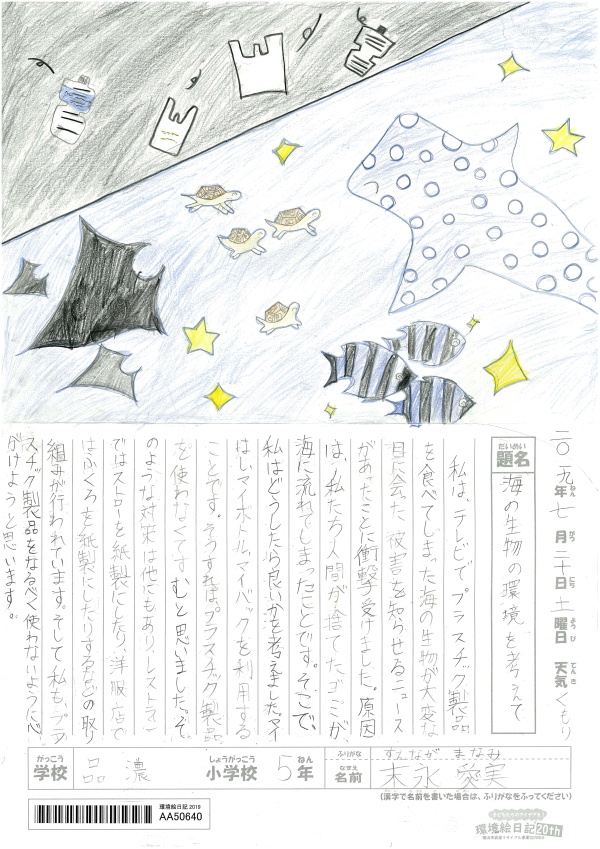 二〇一九年七月二十日土曜日 天気くもり
ねん がつ にち ようび てんき
だいめい
題名 海の生物の環境を考えて
私は、テレビでプラスチック製品
を食べてしまった海の生物が大変な
目に会った被害を知らせるニュース
があったことに衝撃受けました。原因
は、私たち人間が捨てたゴミが、
海に流れてしまったことです。そこで、
私はどうしたら良いかを考えました。マイ
はしマイボトル、マイバックを利用する
ことです。そうすれば、プラスチック製品
を使わなくてすむと思いました。そ
のような対策は他にもあり、レストラン
ではストローを紙製にしたり、洋服店で
はふくろを紙製にしたりするなどの取り
組みが行われています。そして私も、プラ
スチック製品をなるべく使わないように心
がけようと思います。
がっこう しょうがっこう ねん ふりがな すえなが まなみ
学校 品濃 小学校 5年 なまえ 名前 末永愛実
(漢字で名前を書いた場合は、ふりがなをふってください)
環境絵日記 2019
AA50640
環境絵日記20th